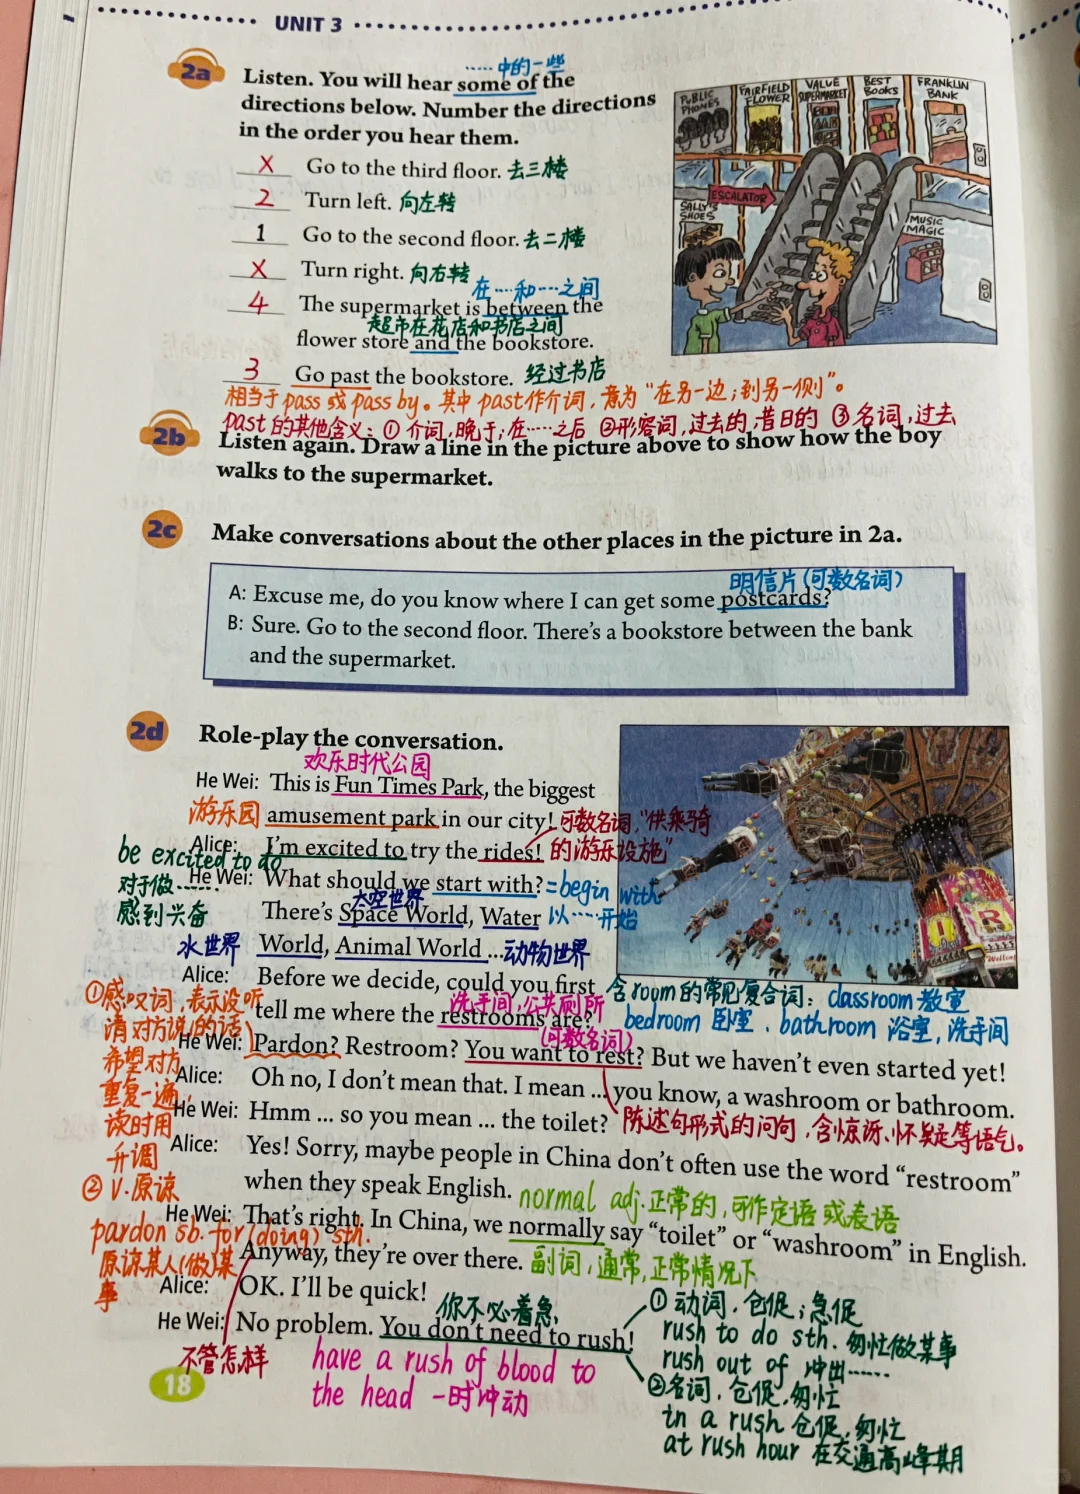 UNIT 3
2a
……中的一些
Listen. You will hear some of the
directions below. Number the directions
in the order you hear them.
X Go to the third floor. 去三楼
2 Turn left. 向左转
1 Go to the second floor. 去二楼
X Turn right. 向右转
在……和……之间
4 The supermarket is between the
超市在花店和书店之间
flower store and the bookstore.
3 Go past the bookstore. 经过书店
PUBLIC PHONES
FAIRFIELD FLOWER
VALUE SUPERMARKET
BEST BOOKS
FRANKLIN BANK
ESCALATOR
SALLY'S SHOES
MUSIC MAGIC
相当于 pass 或 pass by。其中 past作介词,意为“在另一边;到另一侧”。
past 的其他含义:① 介词,晚于;在……之后 ②形容词,过去的,昔日的 ③名词,过去
2b
Listen again. Draw a line in the picture above to show how the boy
walks to the supermarket.
2c
Make conversations about the other places in the picture in 2a.
明信片(可数名词)
A: Excuse me, do you know where I can get some postcards?
B: Sure. Go to the second floor. There's a bookstore between the bank
and the supermarket.
2d
Role-play the conversation.
欢乐时代公园
He Wei: This is Fun Times Park, the biggest
游乐园 amusement park in our city! 可数名词,“供乘骑
Alice: I'm excited to try the rides! 的游乐设施”
be excited to do
对于做……
感到兴奋
He Wei: What should we start with? =begin with
太空世界
There's Space World, Water 以……开始
水世界 World, Animal World ... 动物世界
Alice: Before we decide, could you first
含room的常见复合词: classroom 教室
洗手间,公共厕所
tell me where the restrooms are?
bedroom 卧室 . bathroom 浴室,洗手间
(可数名词)
①感叹词,表示没听
清对方说的话,
希望对方
重复一遍,
读时用
升调
He Wei: Pardon? Restroom? You want to rest? But we haven't even started yet!
Alice: Oh no, I don't mean that. I mean ... you know, a washroom or bathroom.
He Wei: Hmm ... so you mean ... the toilet? 陈述句形式的问句,含惊讶、怀疑等语气。
Alice: Yes! Sorry, maybe people in China don't often use the word “restroom”
② v.原谅
when they speak English. normal adj.正常的,可作定语或表语
He Wei: That's right. In China, we normally say “toilet” or “washroom” in English.
pardon sb. for (doing) sth.
原谅某人(做)某
事
Anyway, they're over there. 副词,通常,正常情况下
Alice: OK. I'll be quick!
你不必着急
He Wei: No problem. You don't need to rush!
不管怎样
① 动词.仓促;急促
rush to do sth. 匆忙做某事
rush out of 冲出……
②名词,仓促,匆忙
in a rush 仓促,匆忙
at rush hour 在交通高峰期
have a rush of blood to
the head 一时冲动
18